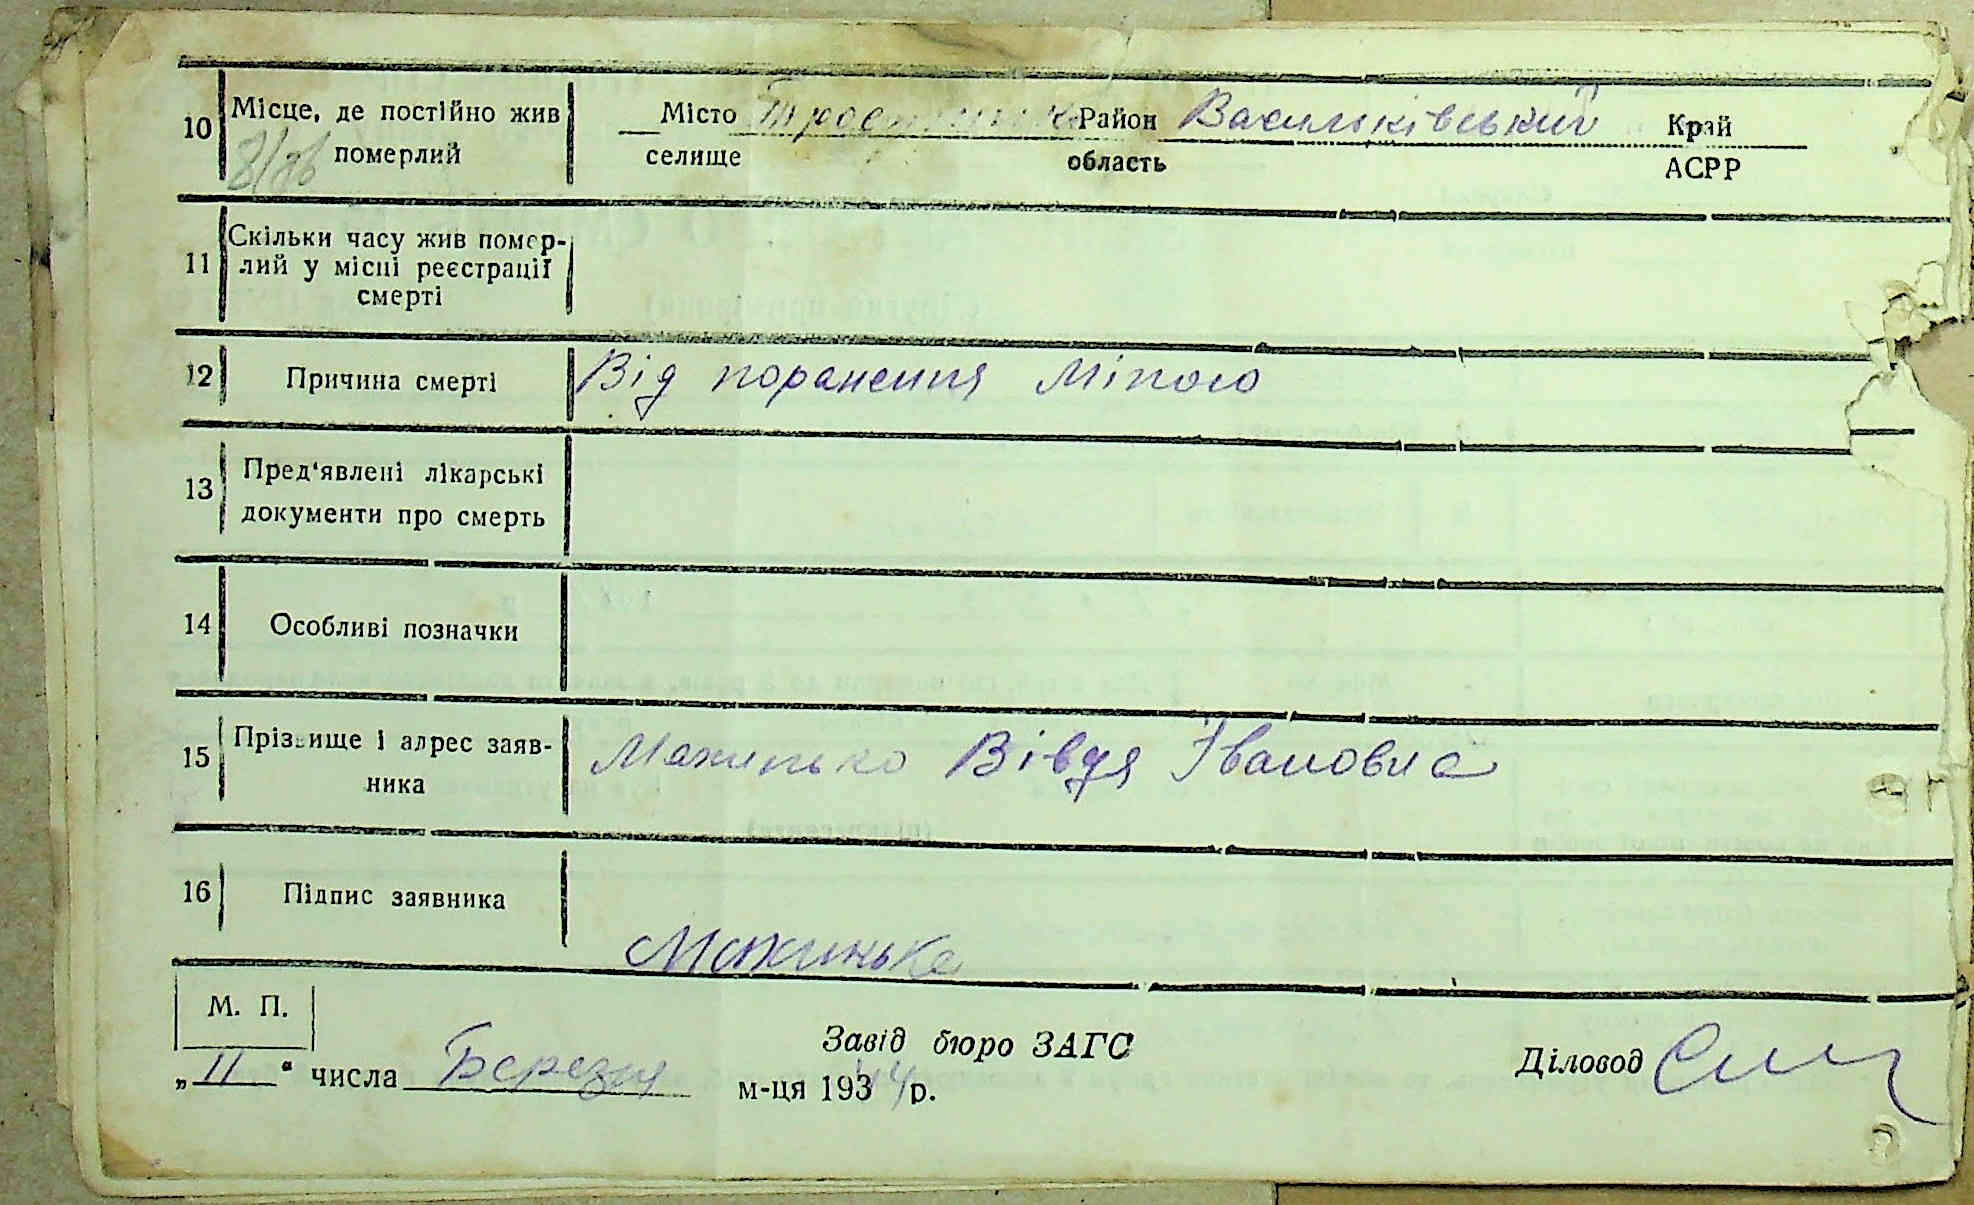 10 Місце, де постійно жив Місто Район Васильківський Край
померлий селище область АСРР
11 Скільки часу жив помер-
лий у місці реєстрації
смерті
12 Причина смерті Від поранення Міною
13 Пред'явлені лікарські
документи про смерть
14 Особливі позначки
15 Прізвище і адрес заяв-
ника
Вівдя Івановна
16 Підпис заявника
М. П.
Завід бюро ЗАГС
Діловод
„11“ числа Березня м-ця 1944 р.